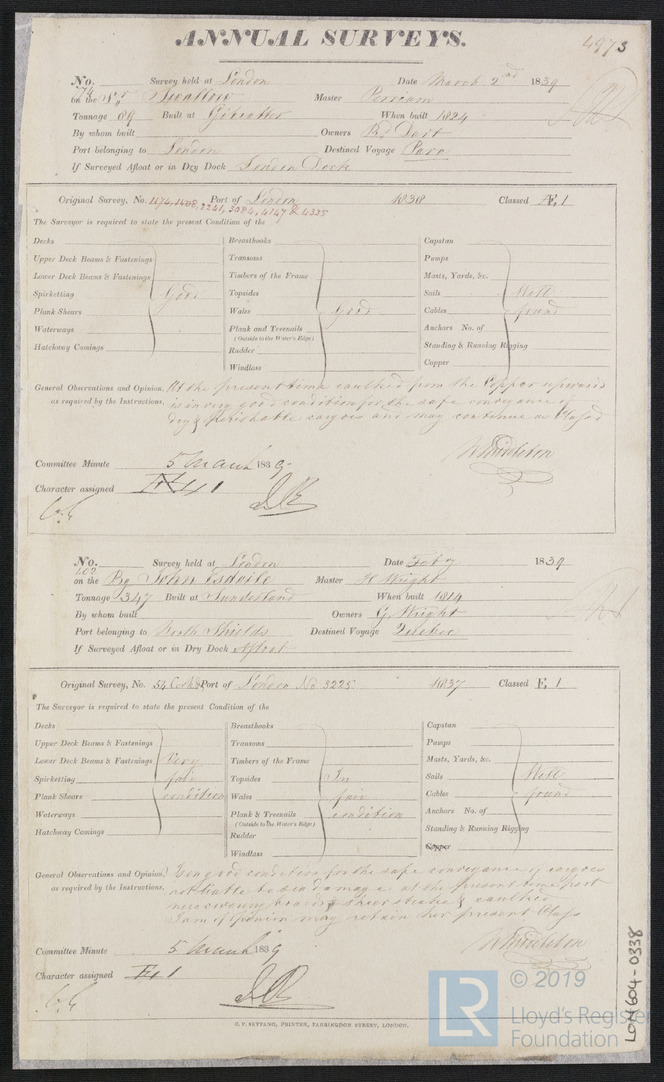 ANNUAL SURVEYS.
4973
No. 74 Survey held at London Date March 2nd 1839
on the Sr Swallow Master Perriam
Tonnage 89 Built at Gibralter When built 1824
By whom built Owners Rd Dart
Port belonging to London Destined Voyage Para
If Surveyed Afloat or in Dry Dock London Dock
Original Survey, No. 1174, 1408, 2241, 3084, 4147 & 4335 Port of London 1838 Classed Æ 1
The Surveyor is required to state the present Condition of the
Decks Breasthooks Capstan
Upper Deck Beams & Fastenings Transoms Pumps
Lower Deck Beams & Fastenings Timbers of the Frame Masts, Yards, &c.
Spirketting Good Topsides Sails Well
Plank Shears Wales Good Cables found
Waterways Plank and Treenails Anchors No. of
(Outside to the Water's Edge)
Hatchway Comings Rudder Standing & Running Rigging
Windlass Copper
General Observations and Opinion, At the present time caulked from the Copper upwards
as required by the Instructions, is in very good condition for the safe conveyance of
dry & Perishable cargoes and may continue as Classed
Committee Minute 5 March 1839
Character assigned Æ 1
No. 102 Survey held at London Date Feb 7 1839
on the Bg John Esdaile Master H Wright
Tonnage 347 Built at Sunderland When built 1814
By whom built Owners G. Wright
Port belonging to North Shields Destined Voyage Quebec
If Surveyed Afloat or in Dry Dock Afloat
Original Survey, No. 54 Port of London No 3225 1837 Classed E 1
The Surveyor is required to state the present Condition of the
Decks Breasthooks Capstan
Upper Deck Beams & Fastenings Transoms Pumps
Lower Deck Beams & Fastenings Very Timbers of the Frame Masts, Yards, &c.
Spirketting fair Topsides In Sails Well
Plank Shears condition Wales fair Cables found
Waterways Plank & Treenails condition Anchors No. of
(Outside to the Water's Edge)
Hatchway Comings Rudder Standing & Running Rigging
Windlass Copper
General Observations and Opinion, In good condition for the safe conveyance of cargoes
as required by the Instructions, not liable to sea damage at the present time part
new sheer strakes & caulked
I am of Opinion may retain her present Class
Committee Minute 5 March 1839
Character assigned E 1
C. F. SEYFANG, PRINTER, FARRINGDON STREET, LONDON.
LON604-0338
LR
© 2019
Lloyd's Register
Foundation